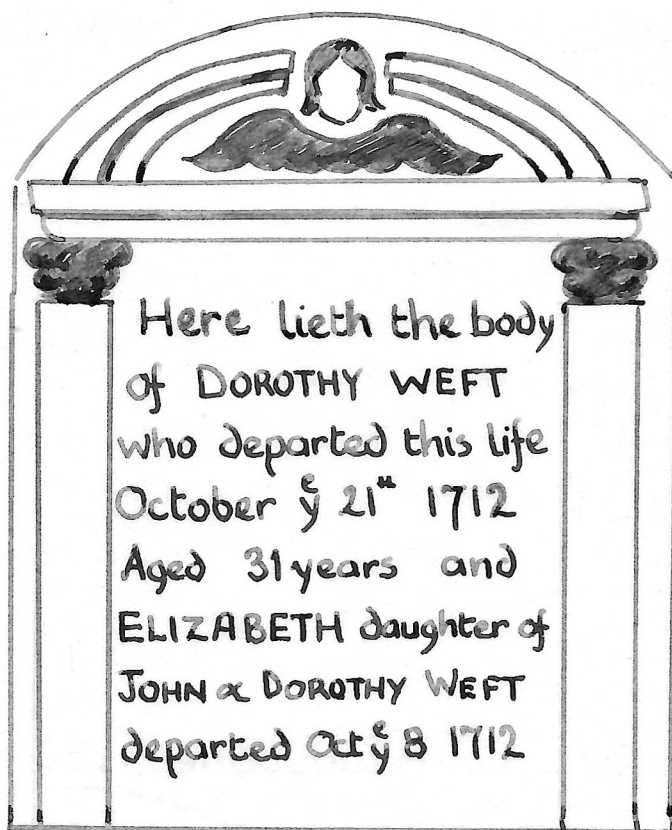 Here lieth the body
of DOROTHY WEFT
who departed this life
October yᵉ 21ˢᵗ 1712
Aged 31 years and
ELIZABETH daughter of
JOHN & DOROTHY WEFT
departed Oct yᵉ 8 1712